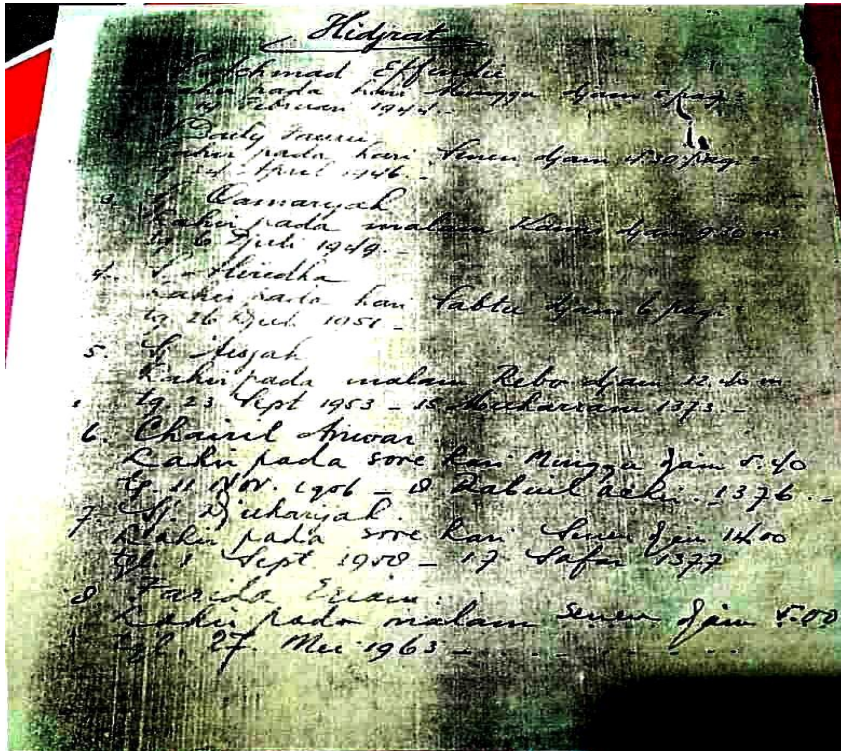 Hidjrat
Effendie
Lahir pada hari Minggu djam 5 pagi
Februari 1944.-
Lahir pada hari Senen djam 4.30 pagi
April 1946.-
3. Sj. Qamarijah
Lahir pada malam Kamis djam
tg 6 Djuli 1949.-
4.
Lahir pada hari Sabtu djam 6 pagi
tg 26 1951.-
5. Sj Aisjah
Lahir pada malam Rebo djam 12.40 m
tg 23 Sept 1953 - 15 Muharram 1373.-
6. Chairil Anwar
Lahir pada sore hari Minggu djam 5.40
tg. 11 Nov. 1956 - 8 Rabiul achir. 1376.-
7. Sj. Djuharijah.
Lahir pada sore hari Senen djam 14.00
tgl. 1 Sept 1958 - 17 Safar 1377
8 Farida
Lahir pada malam Senen djam 5.00
tgl. 27. Mei 1963